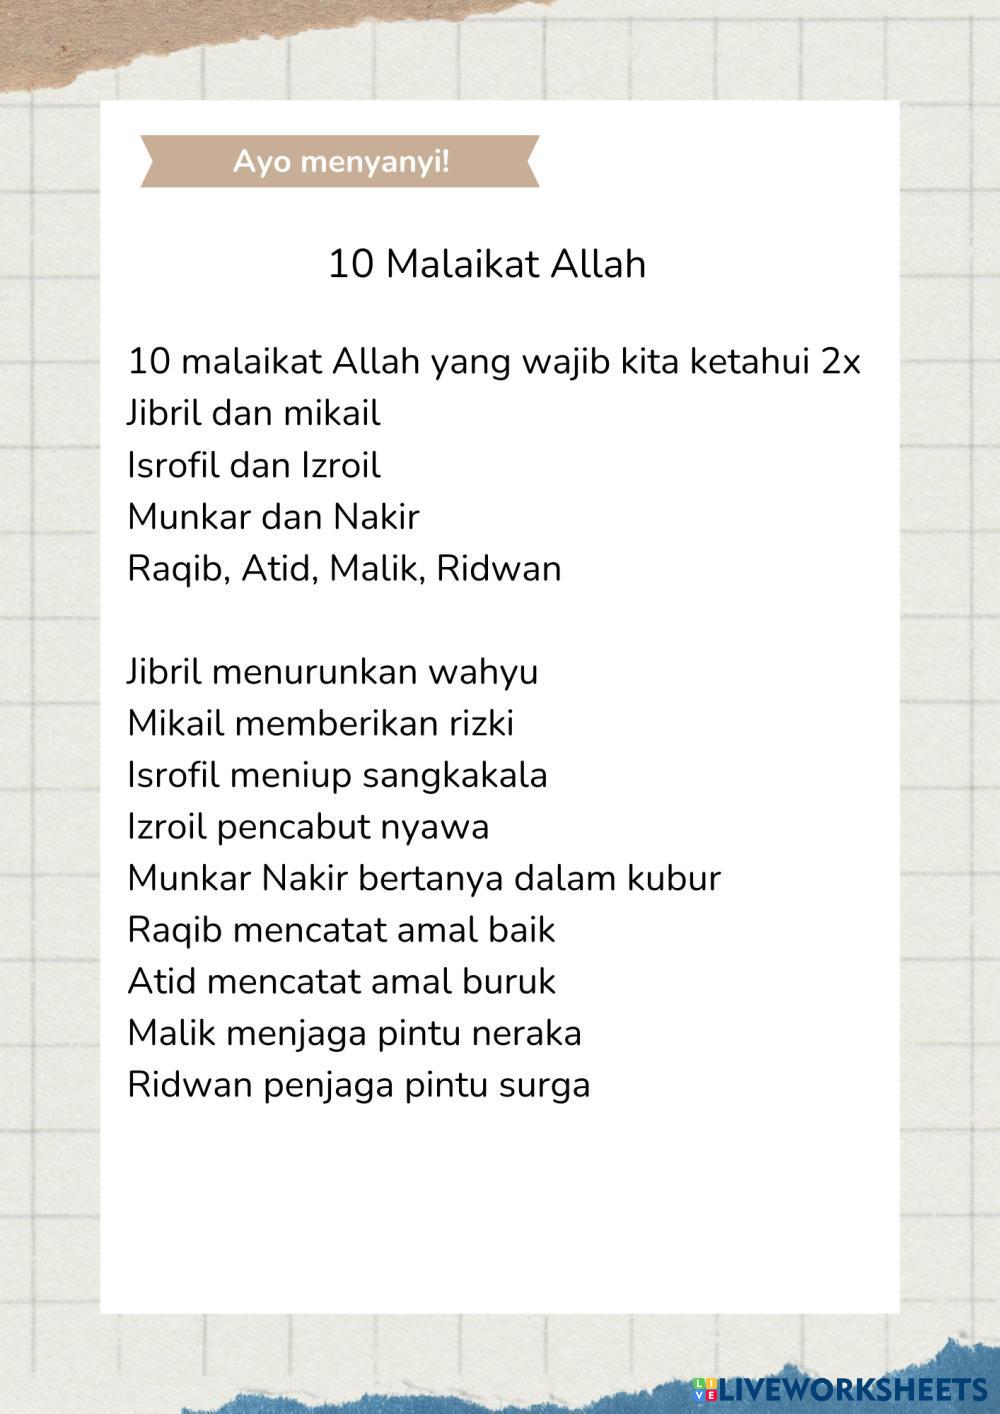 Ayo menyanyi!
10 Malaikat Allah
10 malaikat Allah yang wajib kita ketahui 2x
Jibril dan mikail
Isrofil dan Izroil
Munkar dan Nakir
Raqib, Atid, Malik, Ridwan
Jibril menurunkan wahyu
Mikail memberikan rizki
Isrofil meniup sangkakala
Izroil pencabut nyawa
Munkar Nakir bertanya dalam kubur
Raqib mencatat amal baik
Atid mencatat amal buruk
Malik menjaga pintu neraka
Ridwan penjaga pintu surga
LIVE LIVEWORKSHEETS